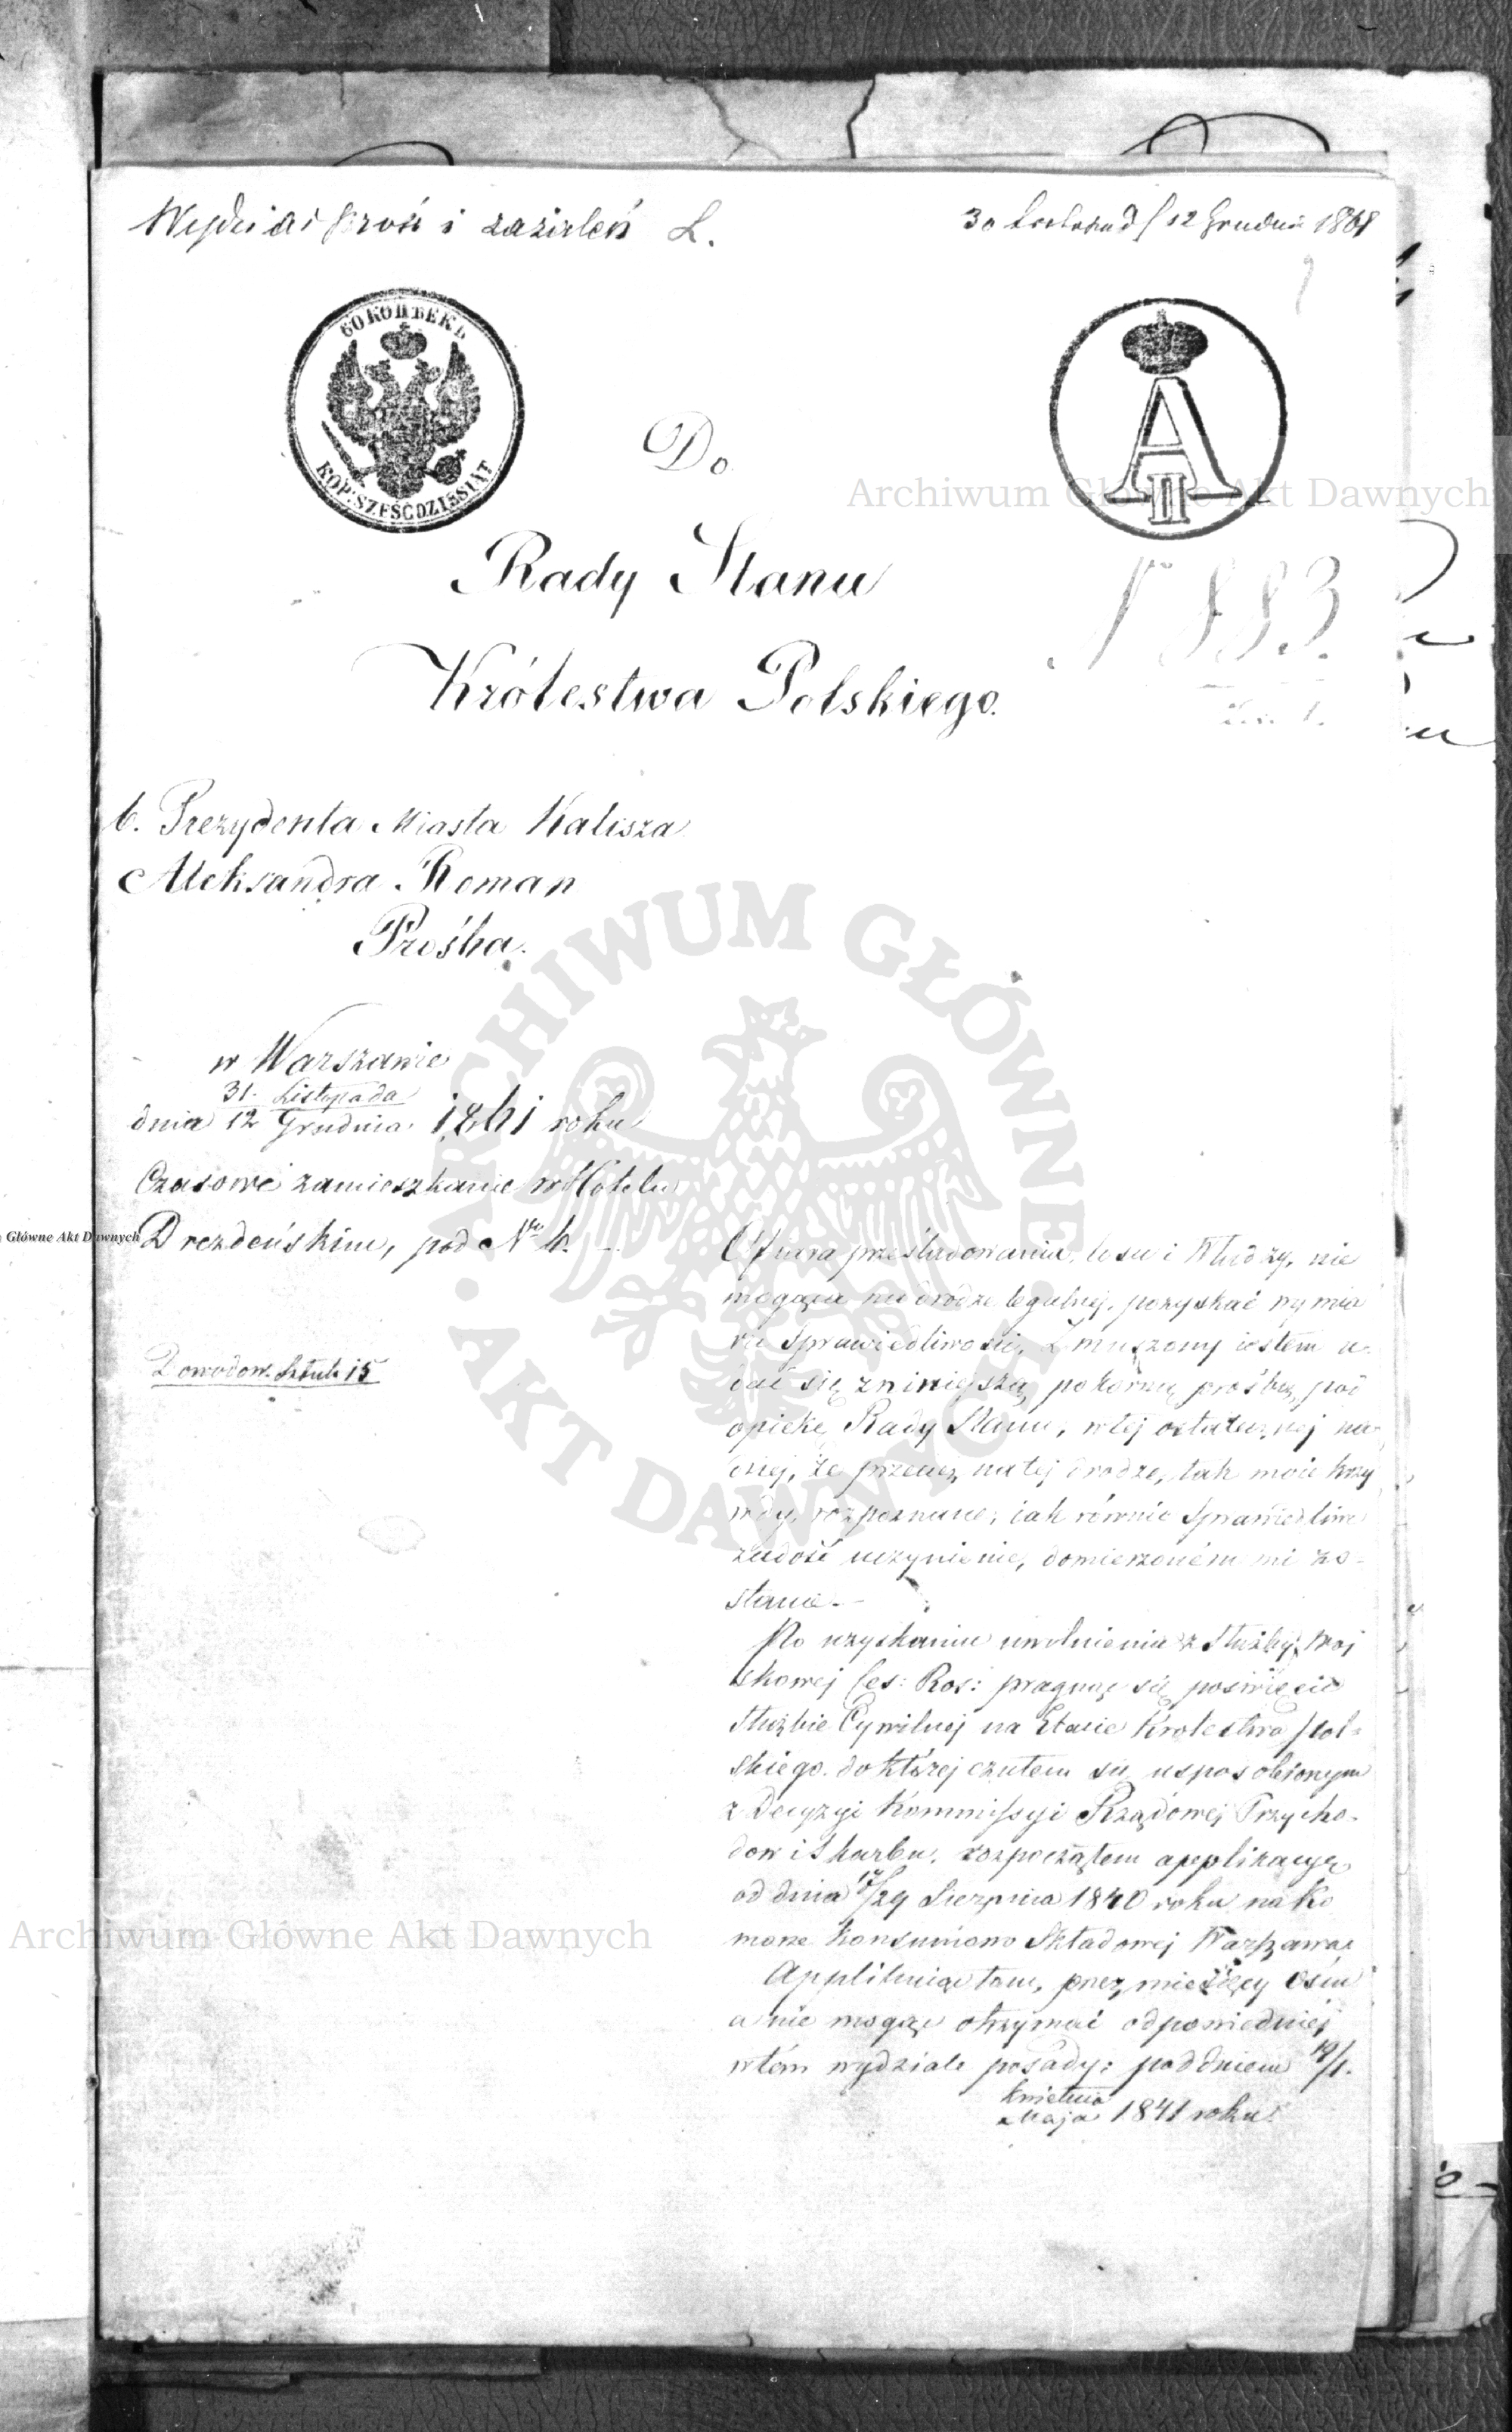 Wydział prośb i zażaleń L.
30 Listopad / 12 Grudnia 1861
60 КОПѢЕКЪ
KOP: SZEŚĆDZIESIĄT
A II
Do
Rady Stanu
Królestwa Polskiego.
b. Prezydenta Miasta Kalisza
Aleksandra Roman
Prośba.
w Warszawie
31. Listopada
dnia 12 Grudnia 1861 roku
Czasowe zamieszkanie w Hotelu
Drezdeńskim, pod Nr 6.
Dowodow Sztuk 15
Ofiara prześladowania, losu i Władzy, nie
mogąca na drodze legalnej, pozyskać wymia
ru Sprawiedliwości, Zmuszony iestem u-
dać się z niniejszą pokorną prośbą, pod
opiekę Rady Stanu, w tej ostatecznej na
dziej, że przecież na tej drodze, tak moie krzy
wdy, rozpoznane; iak równie Sprawiedliwe
zadość uczynienie, domierzoném mi zo-
stanie.-
Po uzyskaniu uwolnienia z Służby Woj
skowej Ces: Ros: pragnąc się poświęcić
Służbie Cywilnej na Etacie Krolestwa Pol-
skiego. do której czułem się usposobionym
z Decyzyi Kommissyi Rządowej Przycho-
dow i Skarbu, rozpocząłem applikacyę
od dnia 17/29 Sierpnia 1840 roku na Ko
morze Konsumowo Składowej Warszawa
Applikując tam, przez miesięcy ośm
a nie mogąc otrzymać odpowiedniej
w tém wydziale posady: pod dniem 19/1.
Kwietnia
Maja 1841 roku
Archiwum Główne Akt Dawnych
Główne Akt Dawnych
ARCHIWUM GŁÓWNE
AKT DAWNYCH
Archiwum Główne Akt Dawnych